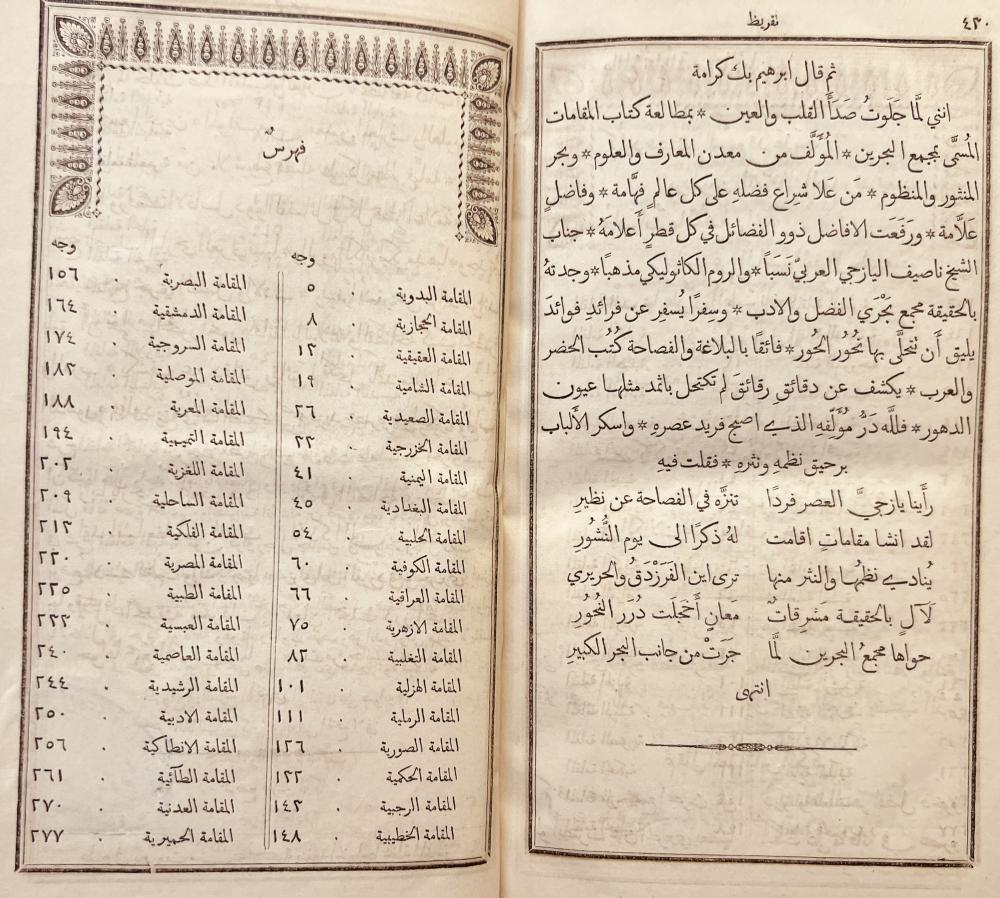 ٤٣٠
تقريظ
ثم قال ابرهيم بك كرامة
انني لمَّا جَلَوتُ صَدَأَ القلب والعين * بمطالعة كتاب المقامات
المُسمَّى بمجمع البحرين * المُؤَلَّف من معدن المعارف والعلوم * وبحر
المنثور والمنظوم * مَن عَلا شِراع فضلهِ على كل عالمٍ فهَّامة * وفاضلٍ
علَّامة * ورَفَعَت الافاضل ذوو الفضائل في كل قطرٍ أَعلامَهُ * جناب
الشيخ ناصيف اليازجي العربيّ نَسَبًا * والروم الكاثوليكي مذهبًا * وجدتهُ
بالحقيقة مجمع بَحْرَي الفضل والادب * وسِفرًا يُسفِر عن فرائدِ فوائدَ
يليق أَن تتحلَّى بها نُحُور الحُور * فائقًا بالبلاغة والفصاحة كُتُب الحضر
والعرب * يكشف عن دقائقِ رقائقَ لم تكتحل باثمد مثلها عيون
الدهور * فللَّه دَرُّ مُؤَلِّفهِ الذي اصبح فريد عصرهِ * واسكر الأَلباب
برحيق نظمهِ ونثرهِ * فقلت فيهِ
رأَينا يازجيَّ العصر فردًا تنزَّه في الفصاحة عن نظيرِ
لقد انشا مقاماتٍ اقامت لهُ ذكرًا الى يوم النُّشُورِ
يُنادي نظمُها والنثر منها ترى اين الفَرَزْدَقُ والحريري
لَآلٍ بالحقيقة مشرقاتٌ مَعانٍ أَخجلت دُرَر النُّحُورِ
حواها مجمعُ البحرين لمَّا جَرَتْ من جانب البحر الكبيرِ
انتهى
فهرس
وجه
المقامة البدوية . ٥
المقامة الحجازية . ٨
المقامة العقيقية . ١٣
المقامة الشامية . ١٩
المقامة الصعيدية . ٢٦
المقامة الخزرجية . ٣٣
المقامة اليمنية . ٤١
المقامة البغدادية . ٤٥
المقامة الحلبية . ٥٤
المقامة الكوفية . ٦٠
المقامة العراقية . ٦٦
المقامة الازهرية . ٧٥
المقامة التغلبية . ٨٣
المقامة الهزلية . ١٠١
المقامة الرملية . ١١١
المقامة الصورية . ١٢٦
المقامة الحكمية . ١٣٢
المقامة الرجبية . ١٤٢
المقامة الخطيبية . ١٤٨
وجه
المقامة البصرية . ١٥٦
المقامة الدمشقية . ١٦٤
المقامة السروجية . ١٧٤
المقامة الموصلية . ١٨٢
المقامة المعرية . ١٨٨
المقامة التميمية . ١٩٤
المقامة اللغزية . ٢٠٢
المقامة الساحلية . ٢٠٩
المقامة الفلكية . ٢١٣
المقامة المصرية . ٢٢٠
المقامة الطبية . ٢٢٥
المقامة العبسية . ٢٣٢
المقامة العاصمية . ٢٤٠
المقامة الرشيدية . ٢٤٤
المقامة الادبية . ٢٥٠
المقامة الانطاكية . ٢٥٦
المقامة الطآئية . ٢٦١
المقامة العدنية . ٢٧٠
المقامة الحميرية . ٢٧٧